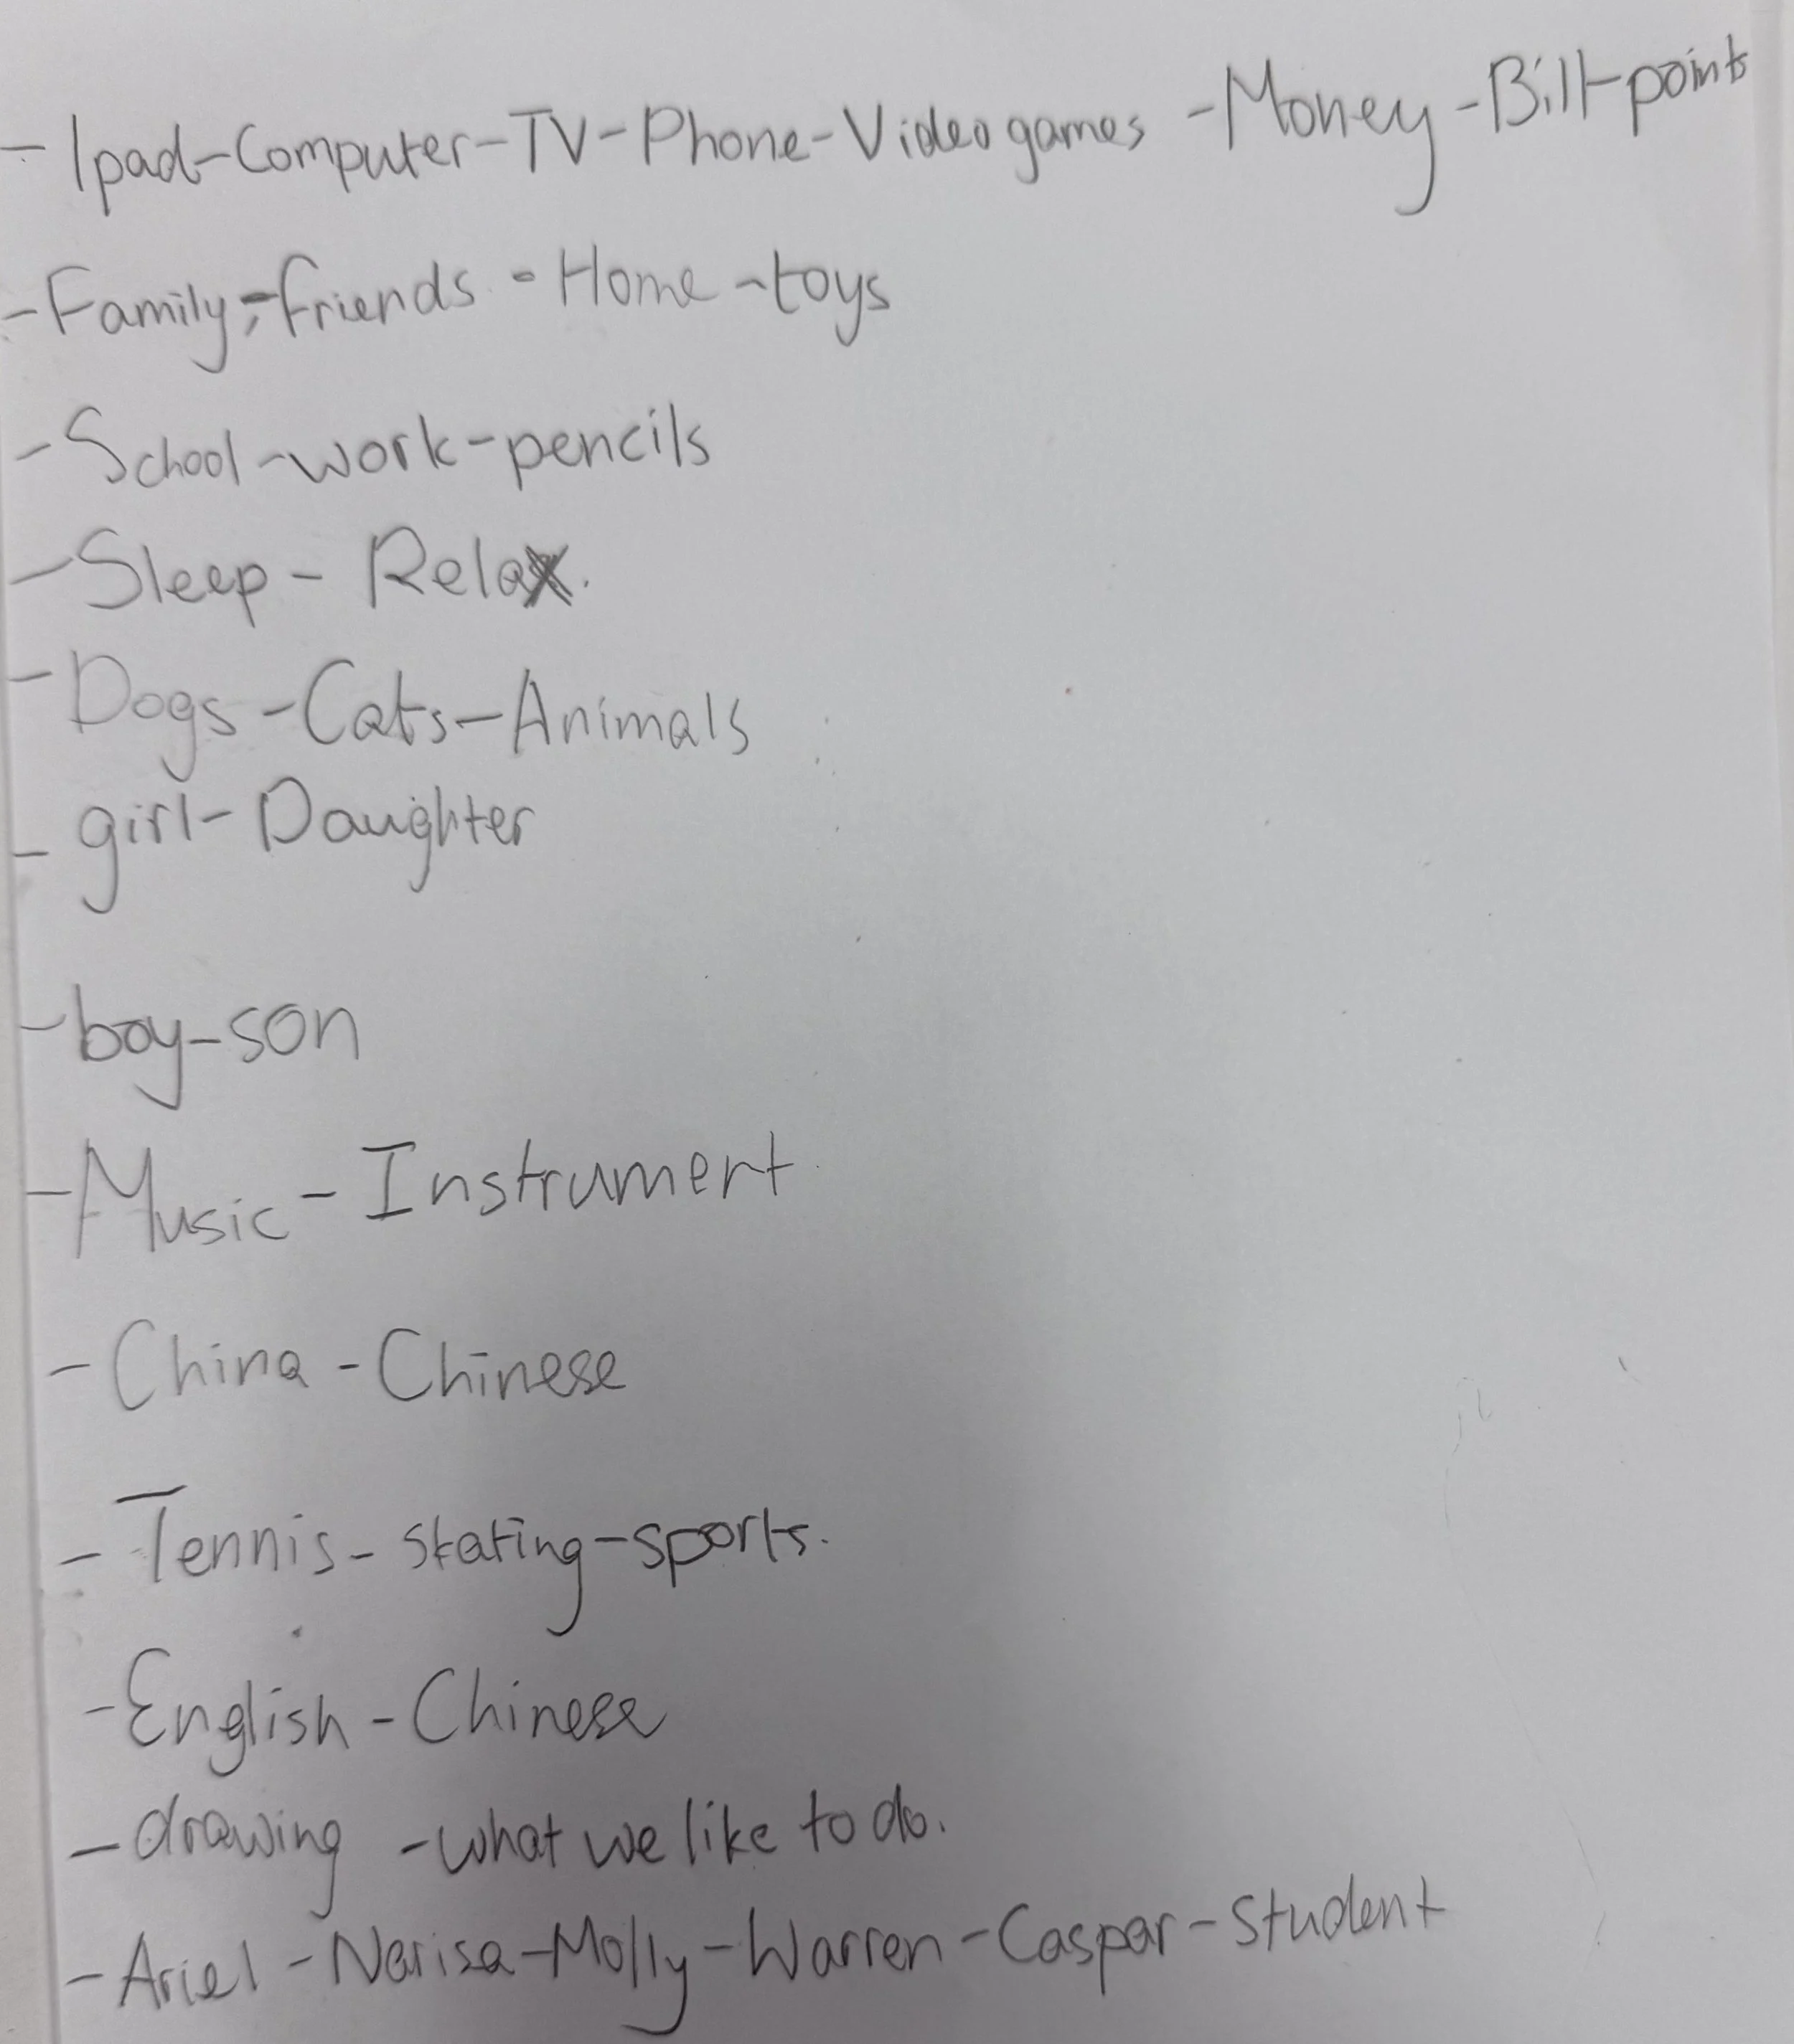 - Ipad-Computer-TV-Phone-Video games -Money -Bill-points
-Family,-friends - Home -toys
-School-work-pencils
-Sleep- Relax.
-Dogs-Cats-Animals
- girl- Daughter
-boy-son
-Music- Instrument
- China -Chinese
- Tennis- skating-sports.
-English -Chinese
- drawing -what we like to do.
- Ariel -Narisa-Molly-Warren-Caspar-Student